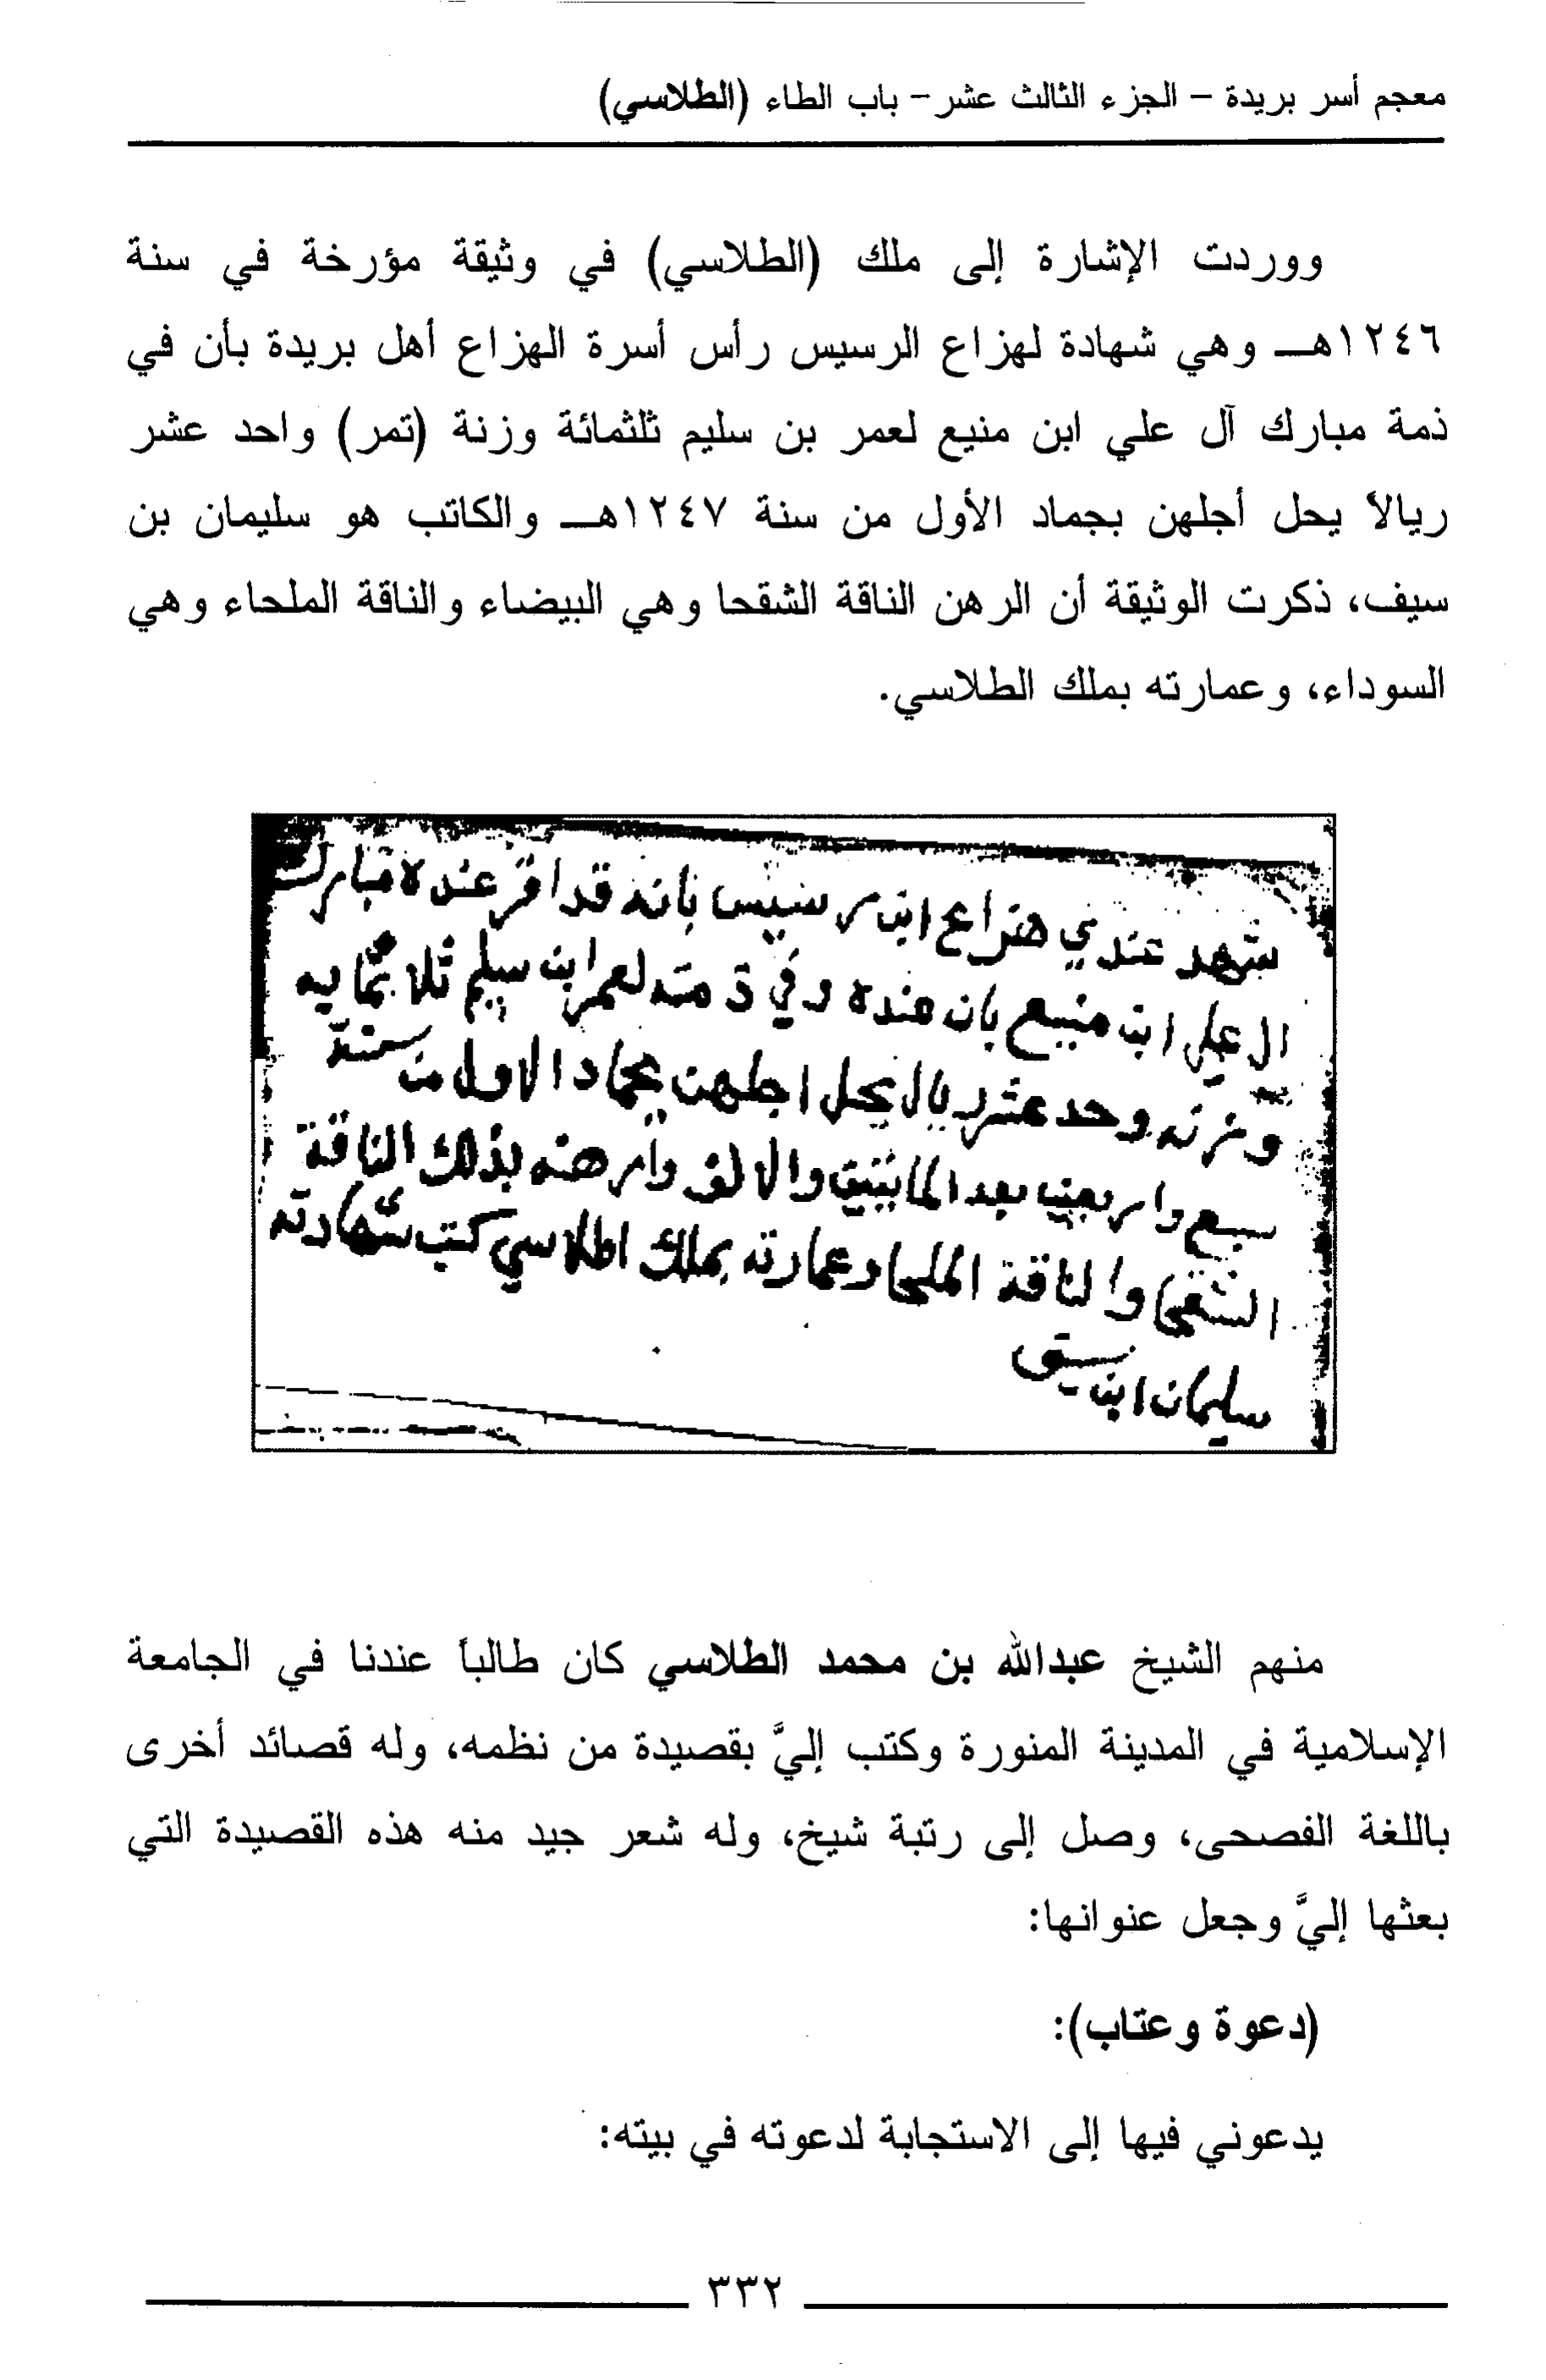 معجم أسر بريدة – الجزء الثالث عشر– باب الطاء (الطلاسي)
ووردت الإشارة إلى ملك (الطلاسي) في وثيقة مؤرخة في سنة
١٢٤٦هـ وهي شهادة لهزاع الرسيس رأس أسرة الهزاع أهل بريدة بأن في
ذمة مبارك آل علي ابن منيع لعمر بن سليم ثلثمائة وزنة (تمر) واحد عشر
ريالاً يحل أجلهن بجماد الأول من سنة ١٢٤٧هـ والكاتب هو سليمان بن
سيف، ذكرت الوثيقة أن الرهن الناقة الشقحا وهي البيضاء والناقة الملحاء وهي
السوداء، وعمارته بملك الطلاسي.
شهد عندي هزاع ابن رسيس بانه قد اقر عنده مبارك
ال علي ابن منيع بان عنده وفي ذمته لعمر ابن سليم ثلاثمايه
وزنه وحد عشر ريال يحل اجلهن بجماد الاول من سنة
سبع واربعين بعد المايتين والالف وارهنه بذلك الناقة
الشقحا والناقة الملحا وعمارته بملك اطلاسي كتب شهادته
سليمان ابن سيف
منهم الشيخ عبدالله بن محمد الطلاسي كان طالباً عندنا في الجامعة
الإسلامية في المدينة المنورة وكتب إليَّ بقصيدة من نظمه، وله قصائد أخرى
باللغة الفصحى، وصل إلى رتبة شيخ، وله شعر جيد منه هذه القصيدة التي
بعثها إليَّ وجعل عنوانها:
(دعوة وعتاب):
يدعوني فيها إلى الاستجابة لدعوته في بيته:
٣٣٢